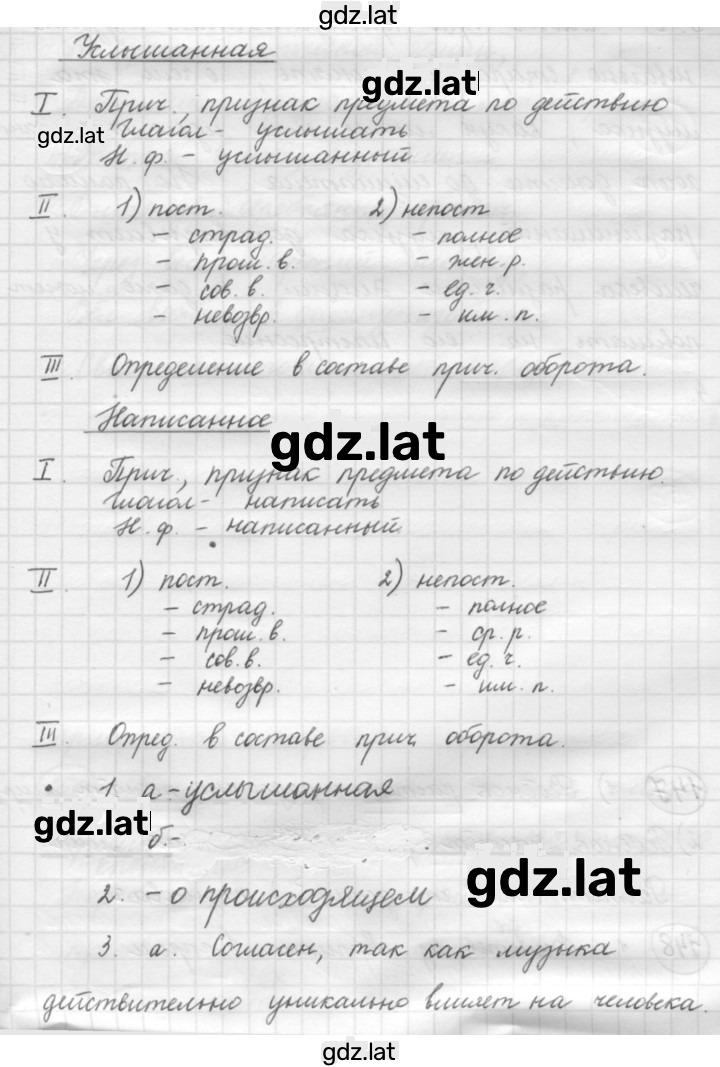 gdz.lat
Услышанная
gdz.lat
I. Прич., признак предмета по действию
gdz.lat
Глагол - услышать
Н. ф. - услышанный
II. 1) пост. 2) непост
- страд. - полное
- прош. в. - жен. р.
- сов. в. - ед. ч.
- невозвр. - им. п.
III. Определение в составе прич. оборота.
Написанное
gdz.lat
I. Прич., признак предмета по действию.
Глагол - написать
Н. ф. - написанный
II 1) пост. 2) непост.
- страд. - полное
- прош. в. - ср. р.
- сов. в. - ед. ч.
- невозвр. - им. п.
III. Опред. в составе прич. оборота.
• 1. а - услышанная
gdz.lat
б. -
gdz.lat
2. - о происходящем
3. а. Согласен, так как музыка
действительно уникально влияет на человека.
gdz.lat